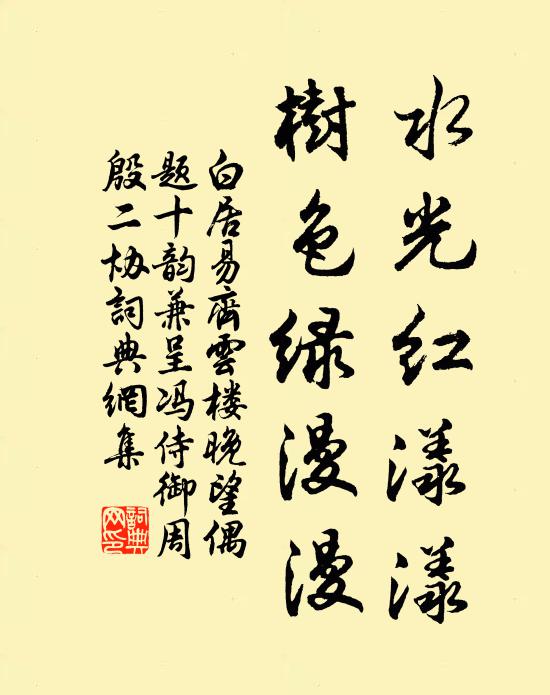 水光红漾漾
樹色绿漫漫
白居易齊雲楼晚望偶
题十韵兼呈冯侍御周
殷二协詞典網集
詞典
网印